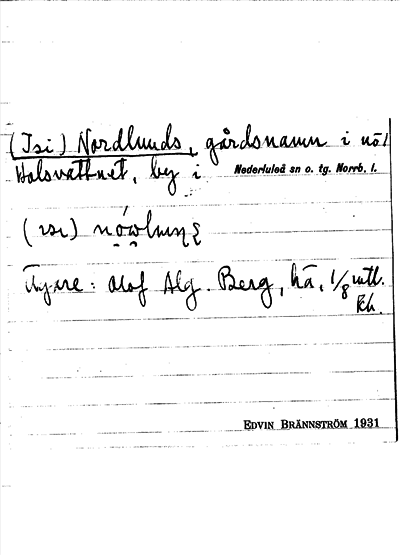 (Isi) Nordlunds, gårdsnamn i nö/
Holsvattnet, by i Nederluleå sn o. tg. Norrb. l.
Ägare: Olof Alg. Berg, hä, 1/8 mtl.
kh.
EDVIN BRÄNNSTRÖM 1931